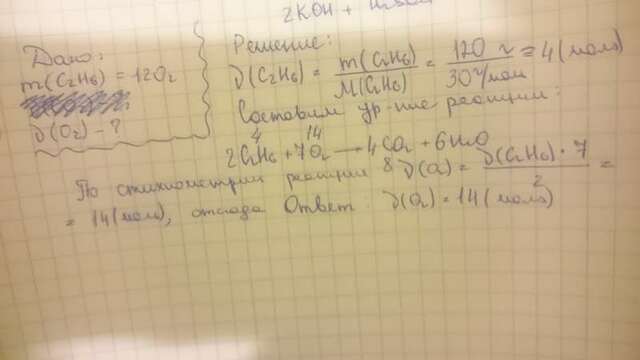 2KOH +
Дано:
m(C2H6) = 120г
ν(O2) - ?
Решение:
ν(C2H6) = m(C2H6) / M(C2H6) = 120 г / 30 г/моль = 4 (моль)
Составим ур-ние реакции:
4 14
2C2H6 + 7O2 → 4CO2 + 6H2O
По стехиометрии реакции ν(O2) = ν(C2H6) · 7 / 2 =
= 14 (моль), отсюда Ответ: ν(O2) = 14 (моль)